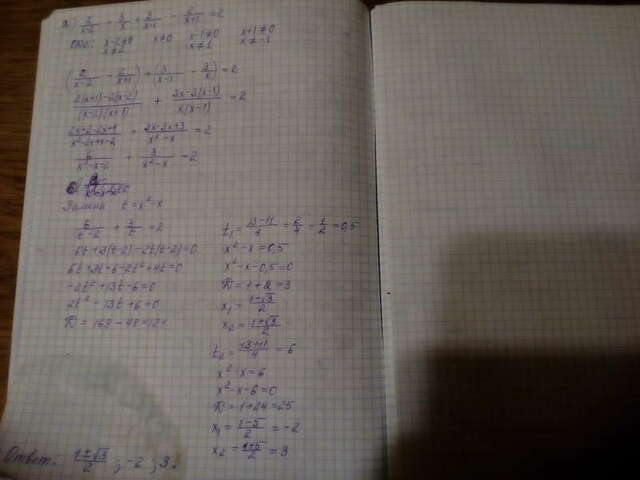 2/(x-2) - 3/x + 3/(x-1) - 2/(x+1) = 2
x-2≠0 x≠0 x-1≠0 x+1≠0
x≠2 x≠1 x≠-1
(2/(x-2) - 2/(x+1)) + (3/(x-1) - 3/x) = 2
(2(x+1)-2(x-2))/((x-2)(x+1)) + (3x-3(x-1))/(x(x-1)) = 2
(2x+2-2x+4)/(x²-2x+x-2) + (3x-3x+3)/(x²-x) = 2
6/(x²-x-2) + 3/(x²-x) = 2
Замена t=x²-x
6/(t-2) + 3/t = 2
6t+3(t-2)-2t(t-2)=0
6t+3t-6-2t²+4t=0
-2t²+13t-6=0
2t²-13t+6=0
D = 169-48=121
t₁ = (13-11)/4 = 2/4 = 1/2 = 0,5
x²-x=0,5
x²-x-0,5=0
D=1+2=3
x₁ = (1+√3)/2
x₂ = (1+√3)/2
t₂ = (13+11)/4 = 6
x²-x=6
x²-x-6=0
D=1+24=25
x₁ = (1-5)/2 = -2
x₂ = (1+5)/2 = 3
Ответ: (1±√3)/2 ; -2 ; 3.